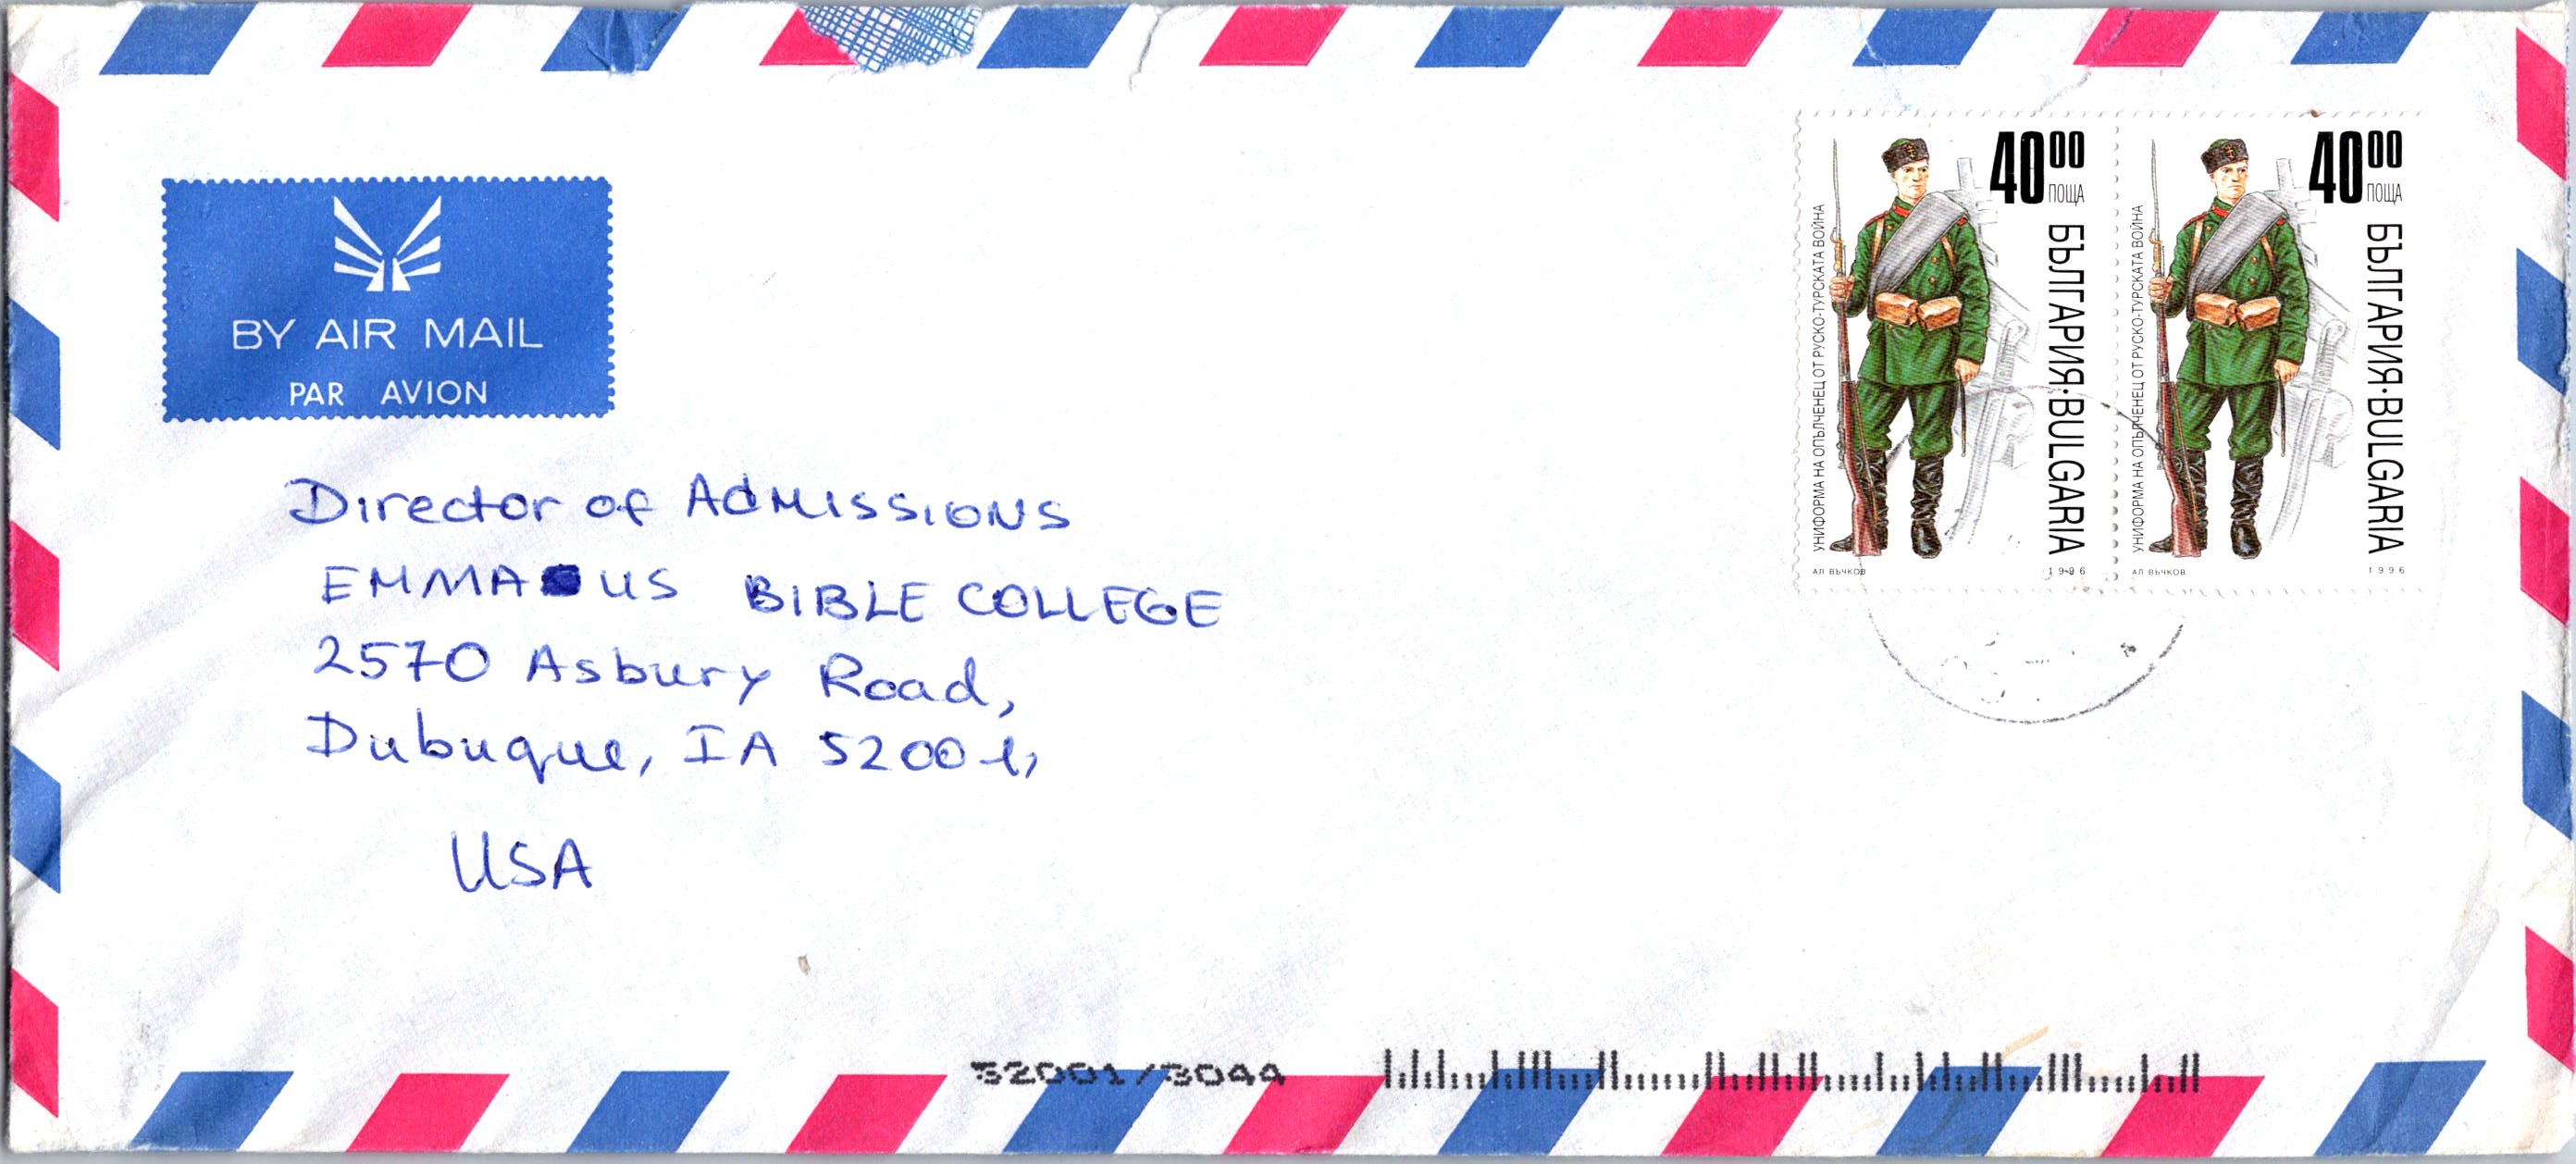 BY AIR MAIL
PAR AVION
40 00
ПОЩА
БЪЛГАРИЯ·BULGARIA
УНИФОРМА НА ОПЪЛЧЕНЕЦ ОТ РУСКО-ТУРСКАТА ВОЙНА
АЛ ВЪЧКОВ
1996
40 00
ПОЩА
БЪЛГАРИЯ·BULGARIA
УНИФОРМА НА ОПЪЛЧЕНЕЦ ОТ РУСКО-ТУРСКАТА ВОЙНА
АЛ ВЪЧКОВ
1996
Director of Admissions
EMMAUS BIBLE COLLEGE
2570 Asbury Road,
Dubuque, IA 52001,
USA
52001/3044